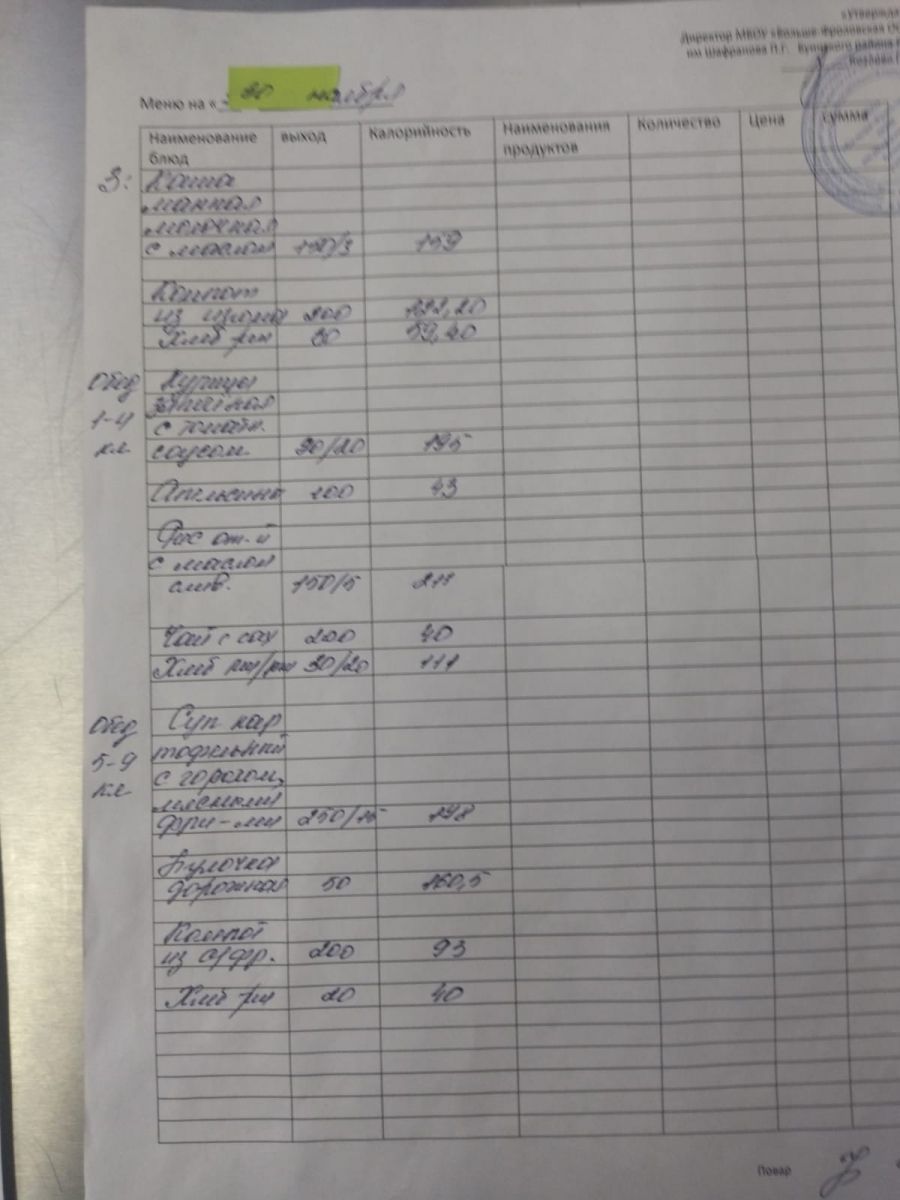 «Утвержда
Директор МБОУ «Больше-Фроловская О
им Шафранова П.Г.
Меню на « 30 ноября
Наименование блюд выход Калорийность Наименования продуктов Количество Цена сумма
З: Каша
манная
молочная
с маслом 150/3 159
Компот
из изюма 200 122,20
Хлеб рж 30 59,40
Обед Курица
1-4 запечёная
с томатн.
кл соусом 90/20 195
Апельсины 100 43
Рис от-й
с маслом
слив. 150/5 211
Чай с сах 200 40
Хлеб пш/рж 30/20 111
Обед Суп кар
5-9 тофельный
с горохом,
кл мясными
фри-ми 250/15 198
Булочка
дорожная 50 160,5
Компот
из с/фр. 200 93
Хлеб рж 20 40
Повар